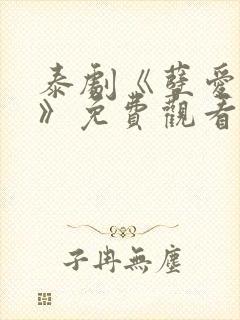 泰劇《孽愛
》免費觀看
子冉無塵